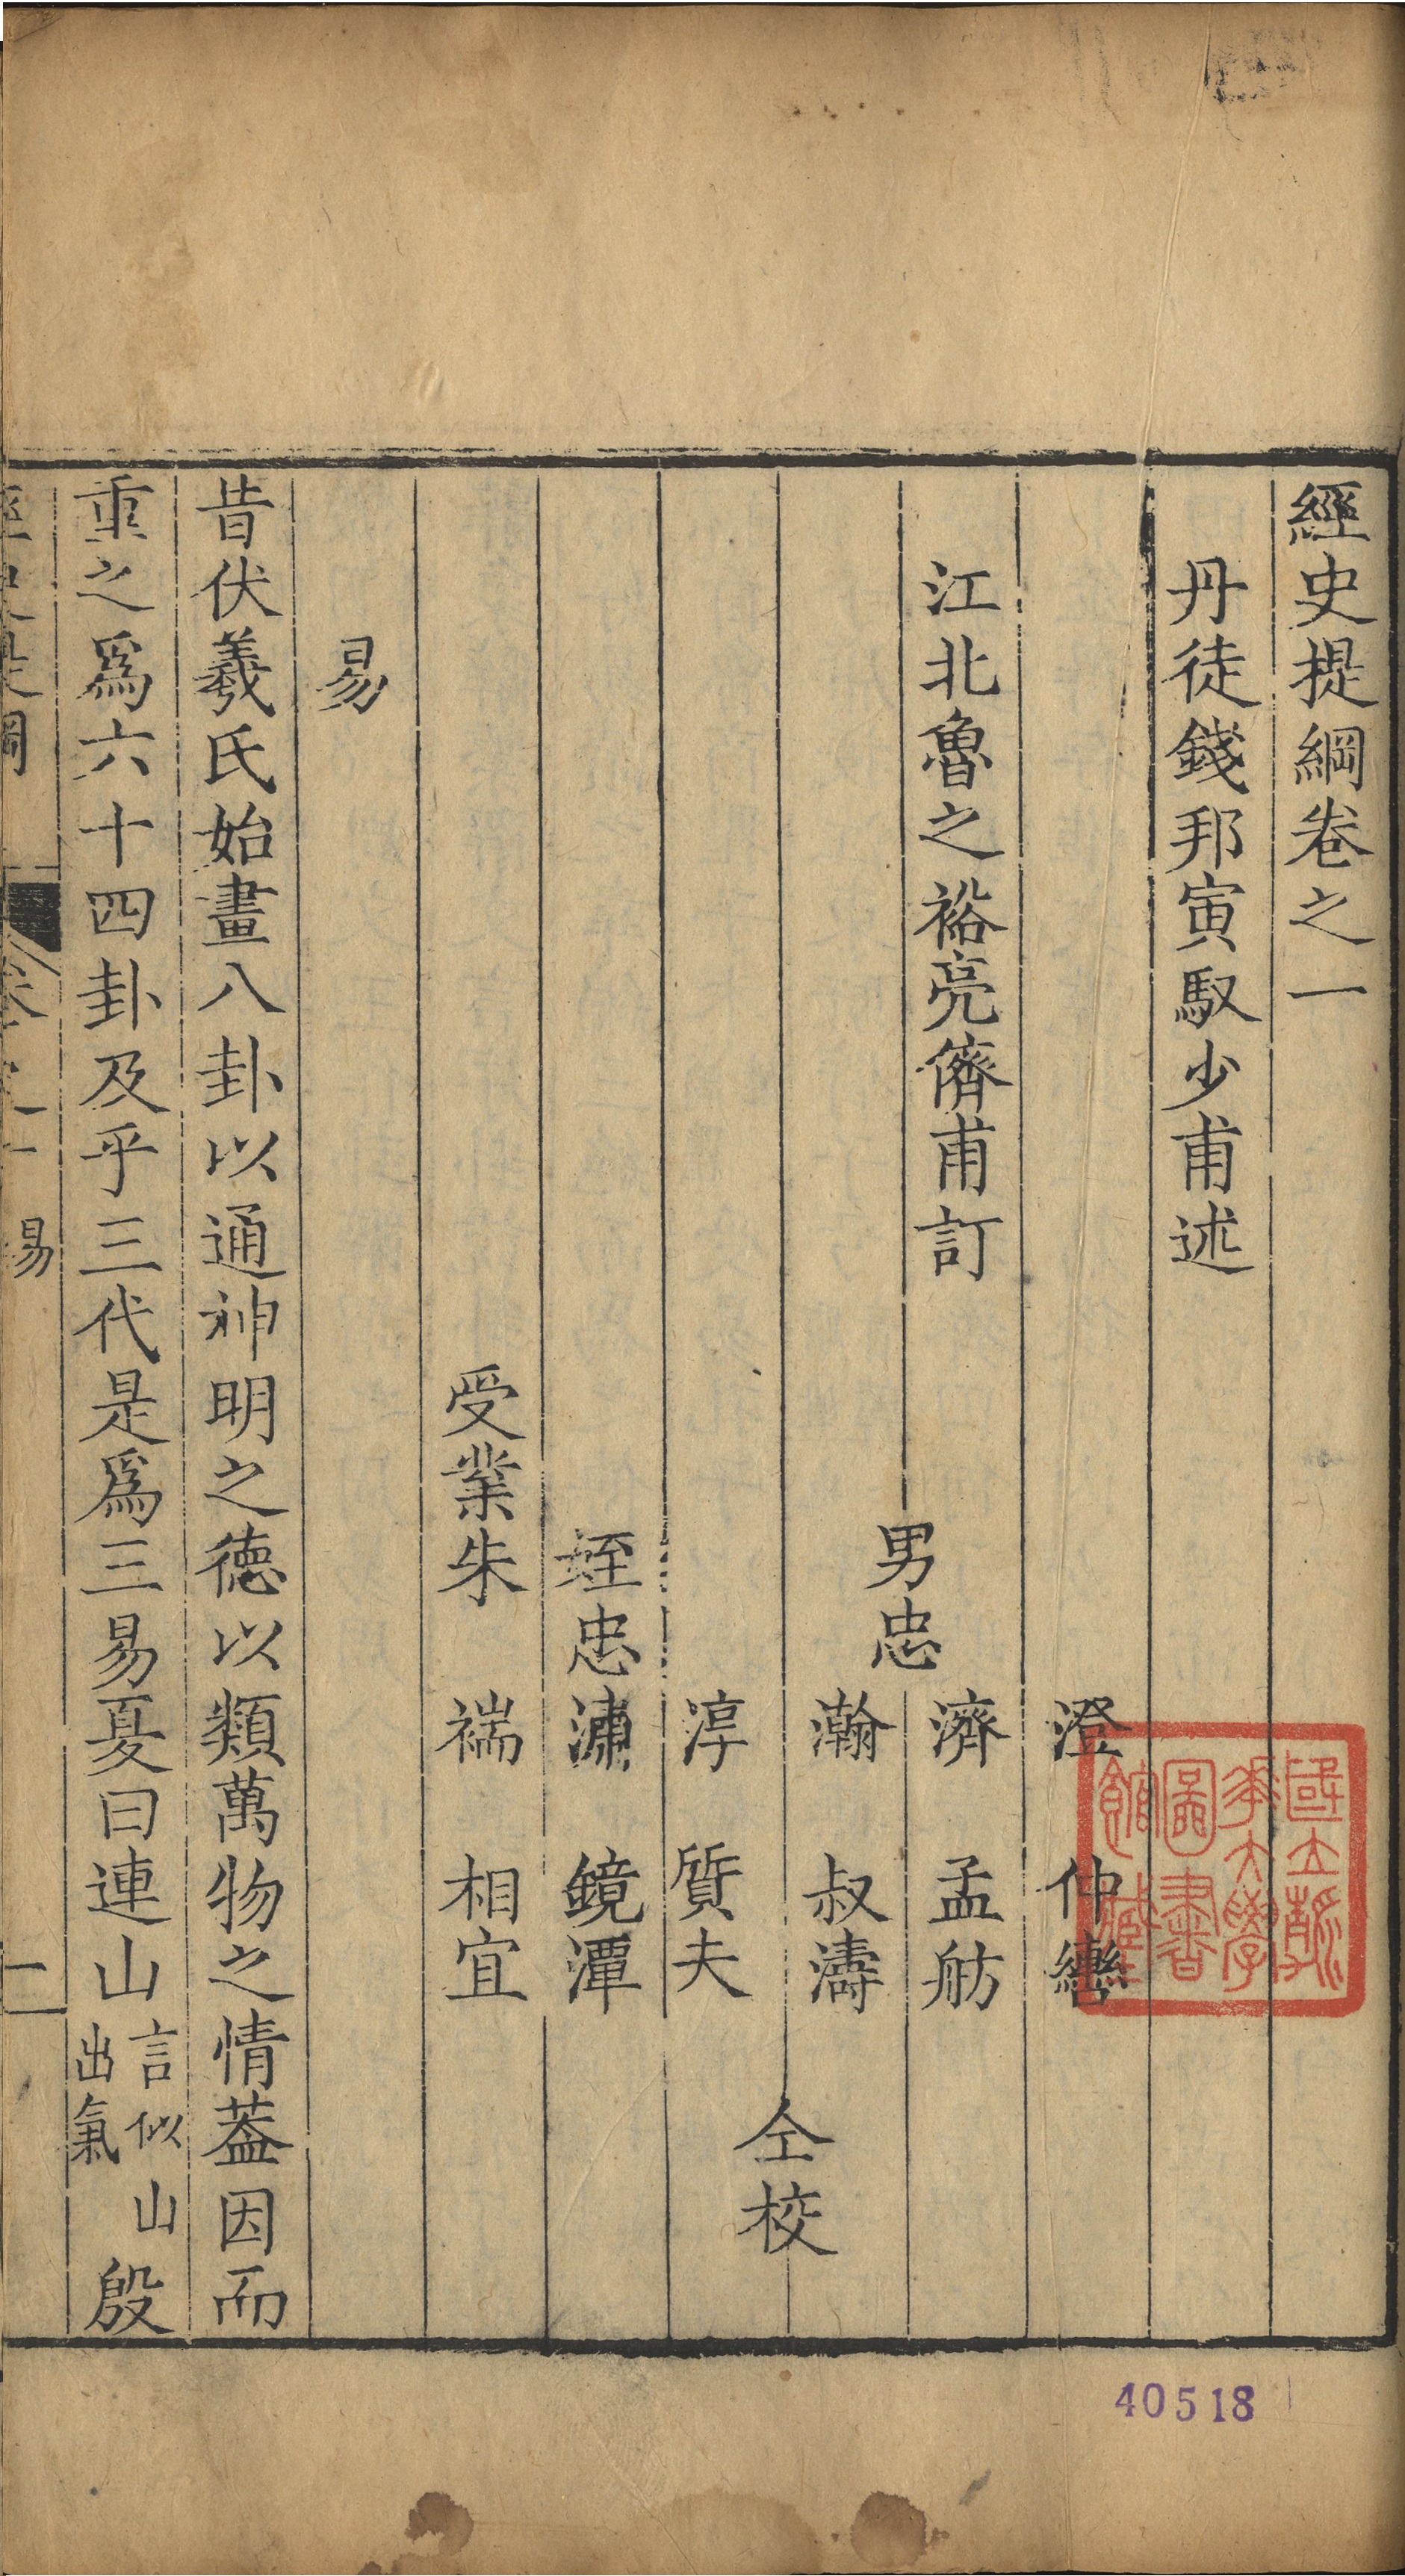 經史提綱卷之一
丹徒錢邦寅馭少甫述
江北魯之裕亮儕甫訂
澄 仲巒
男忠
濟 孟舫
瀚 叔濤
淳 質夫
姪忠潚 鏡潭
受業朱 褍 相宜
仝校
易
昔伏羲氏始畫八卦以通神明之德以類萬物之情葢因而
重之爲六十四卦及乎三代是爲三易夏曰連山言似山出氣殷
經史提綱 卷之一 易 一
國立清華大學圖書館藏
40518